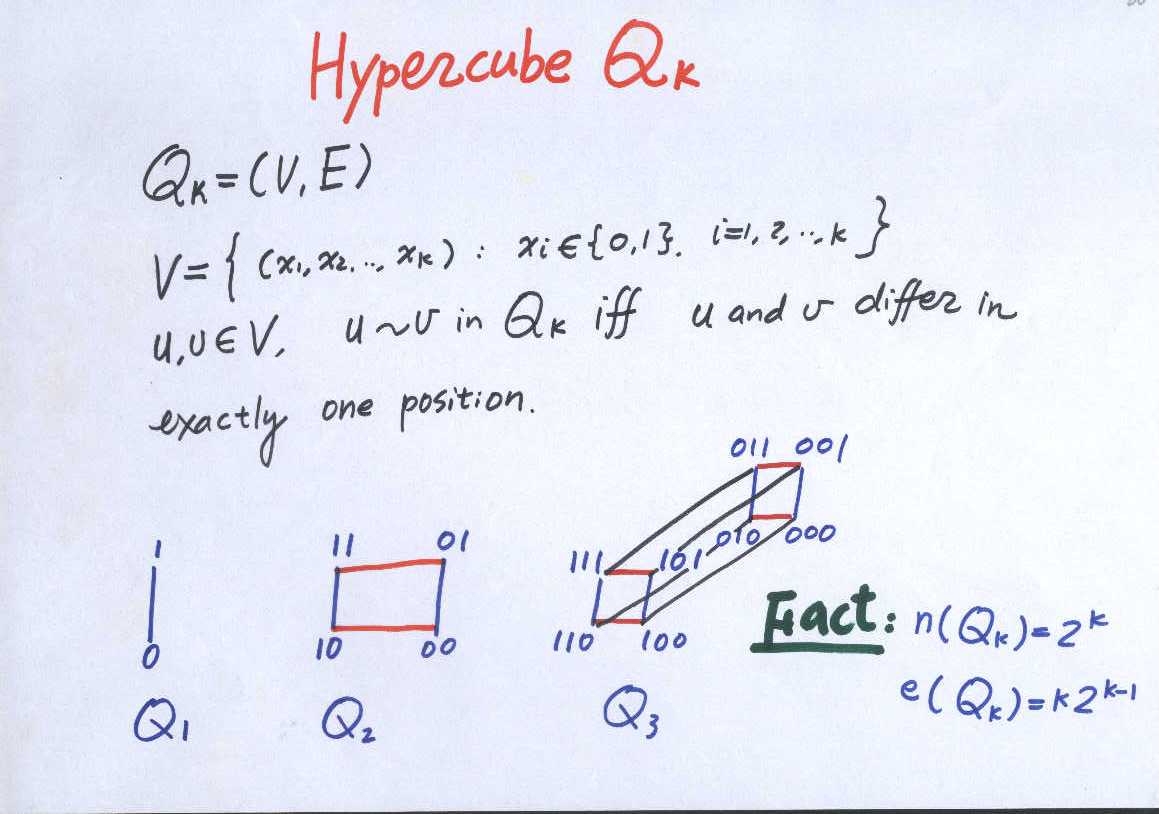 Hypercube Qₖ
Qₖ = (V, E)
V = { (x₁, x₂, .., xₖ) : xᵢ ∈ {0,1}. i=1, 2, .., k }
u, υ ∈ V, u ~ υ in Qₖ iff u and υ differ in
exactly one position.
011 001
1 11 01 010 000
111 101
0 10 00 110 100
Fact: n(Qₖ) = 2ᵏ
e(Qₖ) = k2ᵏ⁻¹
Q₁ Q₂ Q₃